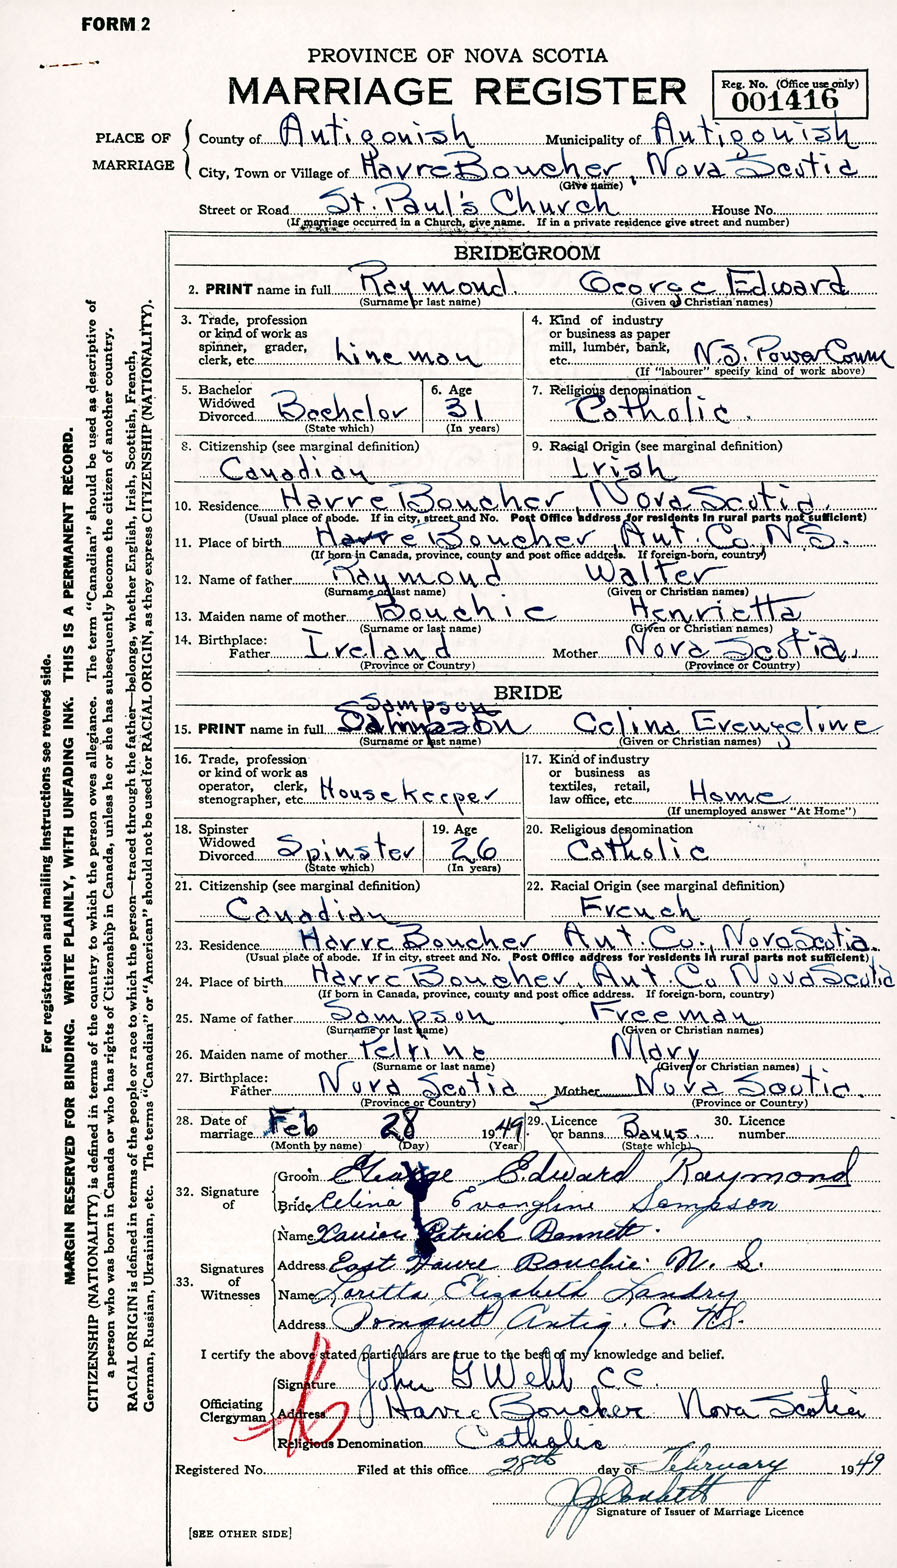 FORM 2
PROVINCE OF NOVA SCOTIA
MARRIAGE REGISTER
Reg. No. (Office use only)
001416
PLACE OF MARRIAGE
County of Antigonish Municipality of Antigonish
City, Town or Village of Havre Boucher, Nova Scotia
(Give name)
Street or Road St. Paul's Church House No.
(If marriage occurred in a Church, give name. If in a private residence give street and number)
BRIDEGROOM
2. PRINT name in full Raymond. George Edward
(Surname or last name) (Given or Christian names)
3. Trade, profession or kind of work as spinner, grader, clerk, etc. Lineman
4. Kind of industry or business as paper mill, lumber, bank, etc. N.S. Power Comm
(If "labourer" specify kind of work above)
5. Bachelor Widowed Divorced Bachelor
(State which)
6. Age 31
(In years)
7. Religious denomination
Catholic.
8. Citizenship (see marginal definition)
Canadian
9. Racial Origin (see marginal definition)
Irish
10. Residence Harre Boucher Nova Scotia
(Usual place of abode. If in city, street and No. Post Office address for residents in rural parts not sufficient)
11. Place of birth Harre Boucher, Ant. Co. N.S.
(If born in Canada, province, county and post office address. If foreign-born, country)
12. Name of father Raymond Walter
(Surname or last name) (Given or Christian names)
13. Maiden name of mother Bouchie Henrietta
(Surname or last name) (Given or Christian names)
14. Birthplace:
Father Ireland Mother Nova Scotia.
(Province or Country) (Province or Country)
BRIDE
Sampson
15. PRINT name in full Celina Evengeline
(Surname or last name) (Given or Christian names)
16. Trade, profession or kind of work as operator, clerk, stenographer, etc. Housekeeper
17. Kind of industry or business as textiles, retail, law office, etc. Home
(If unemployed answer "At Home")
18. Spinster Widowed Divorced Spinster
(State which)
19. Age 26
(In years)
20. Religious denomination
Catholic
21. Citizenship (see marginal definition)
Canadian
22. Racial Origin (see marginal definition)
French
23. Residence Harre Boucher Ant. Co., Nova Scotia.
(Usual place of abode. If in city, street and No. Post Office address for residents in rural parts not sufficient)
24. Place of birth Harre Boucher, Ant. Co Nova Scotia
(If born in Canada, province, county and post office address. If foreign-born, country)
25. Name of father Sampson Freeman
(Surname or last name) (Given or Christian names)
26. Maiden name of mother Pelrine Mary
(Surname or last name) (Given or Christian names)
27. Birthplace:
Father Nova Scotia Mother Nova Scotia.
(Province or Country) (Province or Country)
28. Date of marriage Feb 28 1949
(Month by name) (Day) (Year)
29. Licence or banns Banns.
(State which)
30. Licence number
32. Signature of
Groom George Edward Raymond
Bride Celina Evangline Sampson
33. Signatures of Witnesses
Name Xavier Patrick Bennett.
Address East Havre Bouchie. N. S.
Name Loretta Elizabeth Landry
Address Pomquet Antig. Co. N.S.
I certify the above stated particulars are true to the best of my knowledge and belief.
Officiating Clergyman
Signature John G Webb C C
Address Harre Boucher Nova Scotia
Religious Denomination Catholic
Registered No. Filed at this office 28th day of February 1949
Signature of Issuer of Marriage Licence
[SEE OTHER SIDE]
For registration and mailing instructions see reverse side.
MARGIN RESERVED FOR BINDING. WRITE PLAINLY, WITH UNFADING INK. THIS IS A PERMANENT RECORD.
CITIZENSHIP (NATIONALITY) is defined in terms of the country to which the person owes allegiance. The term "Canadian" should be used as descriptive of
a person who was born in Canada or who has rights of Citizenship in Canada, unless he or she has subsequently become the citizen of another country.
RACIAL ORIGIN is defined in terms of the people or race to which the person—traced through the father—belongs, whether English, Irish, Scottish, French,
German, Russian, Ukrainian, etc. The terms "Canadian" or "American" should not be used for RACIAL ORIGIN, as they express CITIZENSHIP (NATIONALITY).